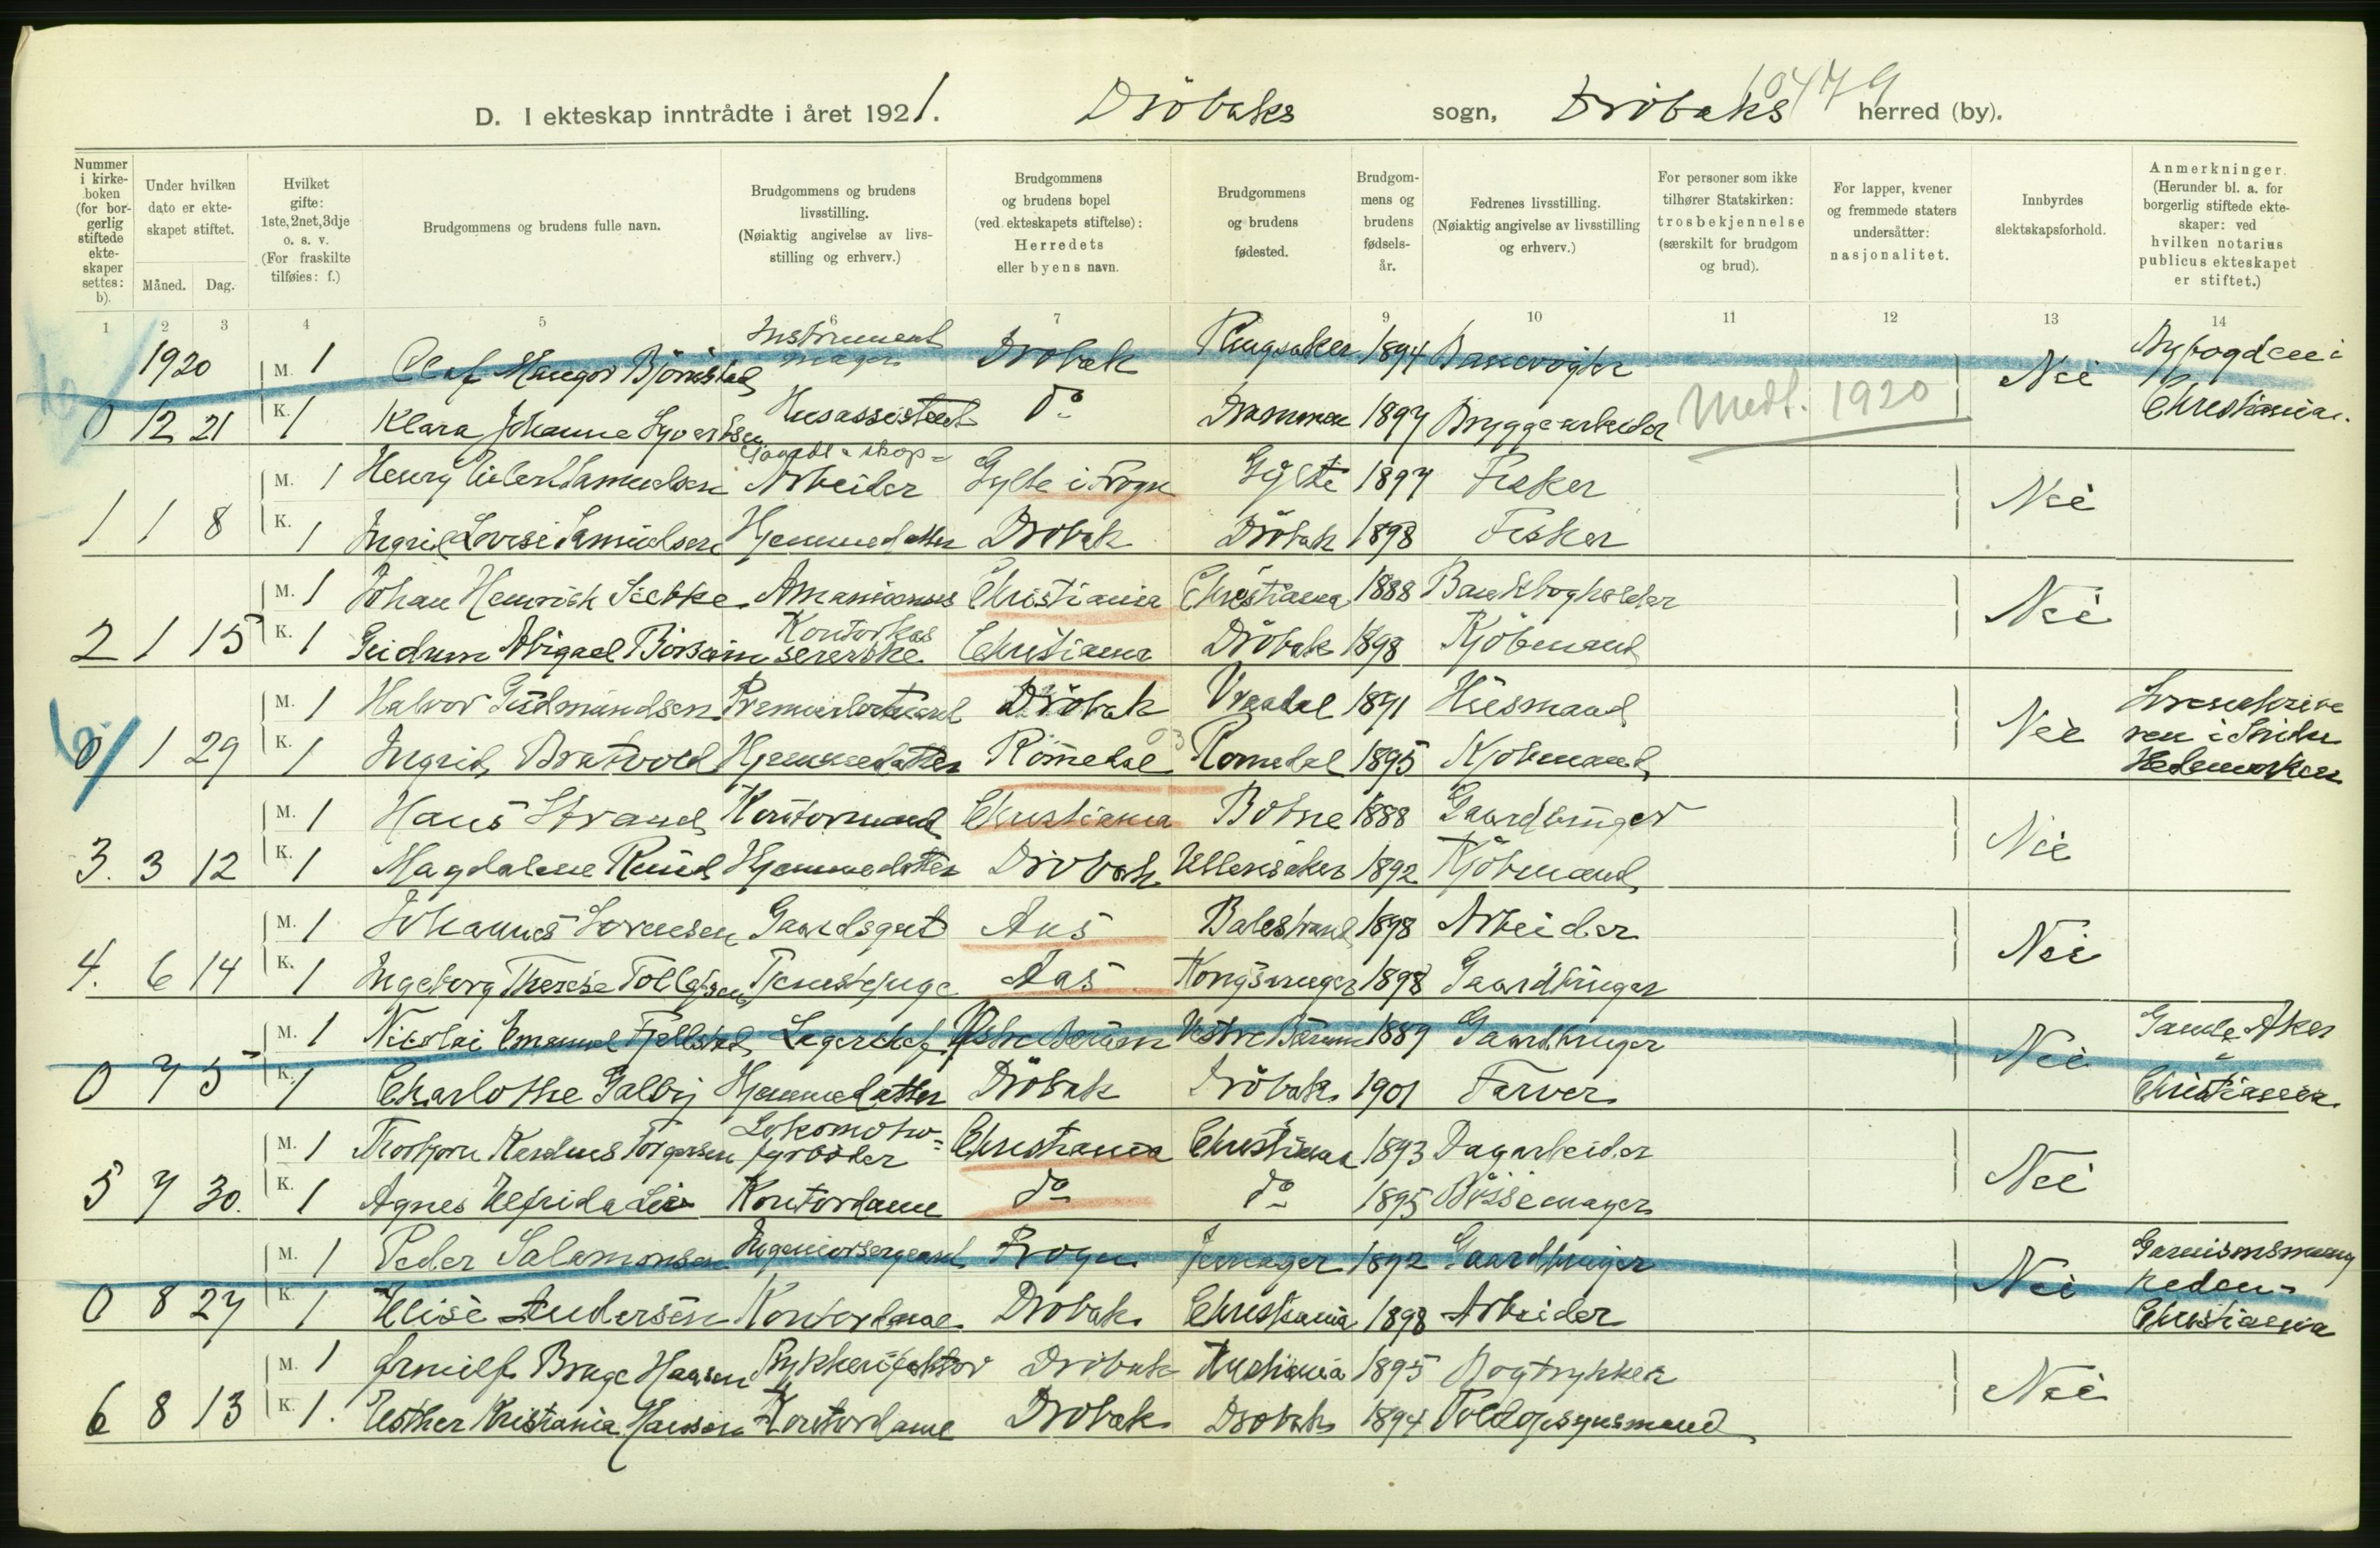 10479
D. I ekteskap inntrådte i året 1921. Dröbaks sogn, Dröbaks herred (by).
Nummer i kirkeboken (for borgerlig stiftede ekteskaper settes: b).
Under hvilken dato er ekteskapet stiftet.
Måned. Dag.
Hvilket gifte: 1ste, 2net, 3dje o. s. v. (For fraskilte tilføies: f.)
Brudgommens og brudens fulle navn.
Brudgommens og brudens livsstilling. (Nøiaktig angivelse av livsstilling og erhverv.)
Brudgommens og brudens bopel (ved ekteskapets stiftelse): Herredets eller byens navn.
Brudgommens og brudens fødested.
Brudgommens og brudens fødselsår.
Fedrenes livsstilling. (Nøiaktig angivelse av livsstilling og erhverv.)
For personer som ikke tilhører Statskirken: trosbekjennelse (særskilt for brudgom og brud).
For lapper, kvener og fremmede staters undersåtter: nasjonalitet.
Innbyrdes slektskapsforhold.
Anmerkninger. (Herunder bl. a. for borgerlig stiftede ekteskaper: ved hvilken notarius publicus ekteskapet er stiftet.)
1 2 3 4 5 6 7 9 10 11 12 13 14
1920 M. 1 Olaf Mangor Björnstad Instrumentmager Dröbak Ringsaker 1894 Nei Byfogden i
0 12 21 K. 1 Klara Johanne Syvertsen Husassistent do Drammen 1897 Bryggearbeider Medt. 1920 Christiania.
M. 1 Henry Samuelsen Arbeider Gylte i Frogn Gylte 1897 Fisker Nei
1 1 8 K. 1 Ingrid Lovise Samuelsen Hjemmedatter Dröbak Dröbak 1898 Fisker
M. 1 Johan Henrik Siebke Amanuensis Christiania Christiania 1888 Bankbogholder Nei
2 1 15 K. 1 Gudrun Abigael Börsum Kontorkassererske Christiania Dröbak 1898 Kjöbmand
M. 1 Halvor Gudmundsen Premierløitnant Dröbak Vraadal 1891 Husmand Nei Sorenskriveren i Söndre Hedemarken
0 1 29 K. 1 Ingrid Bratvold Hjemmedatter Romedal Romedal 1895 Kjöbmand
M. 1 Hans Strand Kontormand Christiania Botne 1888 Gaardbruger Nei
3. 3 12 K. 1 Magdalene Ruud Hjemmedatter Dröbak Ullensaker 1892 Kjöbmand
M. 1 Johannes Sorensen Gaardsgut Aas Balestrand 1898 Arbeider Nei
4. 6 14 K. 1 Ingeborg Therese Tollefsen Tjenestepige Aas Kongsvinger 1898 Gaardbruger
M. 1 Nikolai Emanuel Fjellstad Lagerchef Vestre Bærum Vestre Bærum 1889 Gaardbruger Nei Gamle Aker
0 7 5 K. 1 Charlothe Galby Hjemmedatter Dröbak Dröbak 1901 Farver Christiania
M. 1 Thorbjorn Torgersen Lokomotivfyrböder Christiania Christiania 1893 Dagarbeider Nei
5 7 30. K. 1 Agnes Elfrida Lie Kontordame do do 1895 Bössemager
M. 1 Peder Salamonsen Ingeniørsergeant Frogn Jevnager 1892 Gaardbruger Nei Garnisonsmenigheden -
0 8 27 K. 1 Elise Andersen Kontordame Dröbak Christiania 1898 Arbeider Christiania
M. 1 Arnulf Brage Hansen Trykkerifaktor Dröbak Kristiania 1895 Bogtrykker Nei
6 8 13 K. 1. Esther Kristiania Hansen Kontordame Dröbak Dröbak 1894 Toldopsynsmand